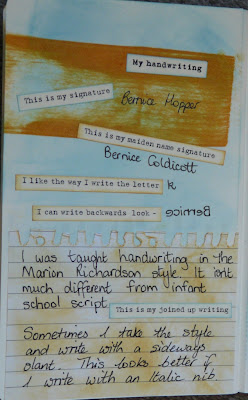 My handwriting
This is my signature
Bernice Hopper
This is my maiden name signature
Bernice Coldicott
I like the way I write the letter
k
I can write backwards look -
Bernice
I was taught handwriting in the
Marion Richardson style. It isn't
much different from infant
school script.
This is my joined up writing
Sometimes I take the style
and write with a sideways
slant. This looks better if
I write with an Italic nib.